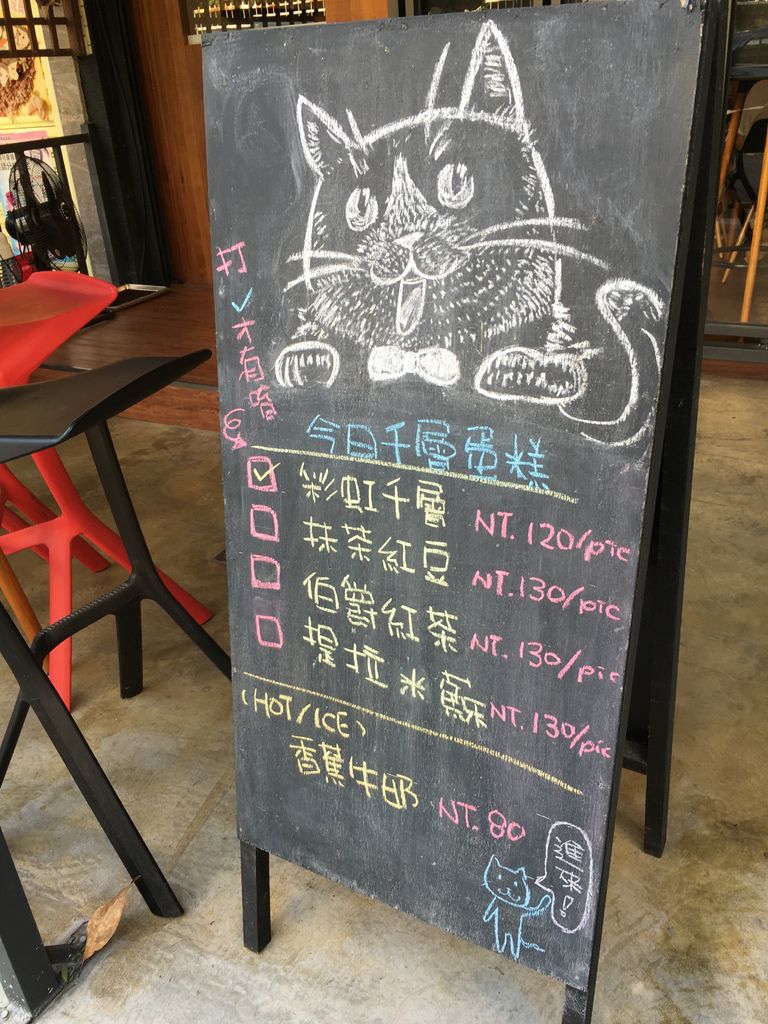 打
✓
才有唷
今日千層蛋糕
彩虹千層 NT.120/pic
抹茶紅豆 NT.130/pic
伯爵紅茶 NT.130/pic
提拉米蘇 NT.130/pic
(HOT/ICE)
香蕉牛奶 NT.80
進來!